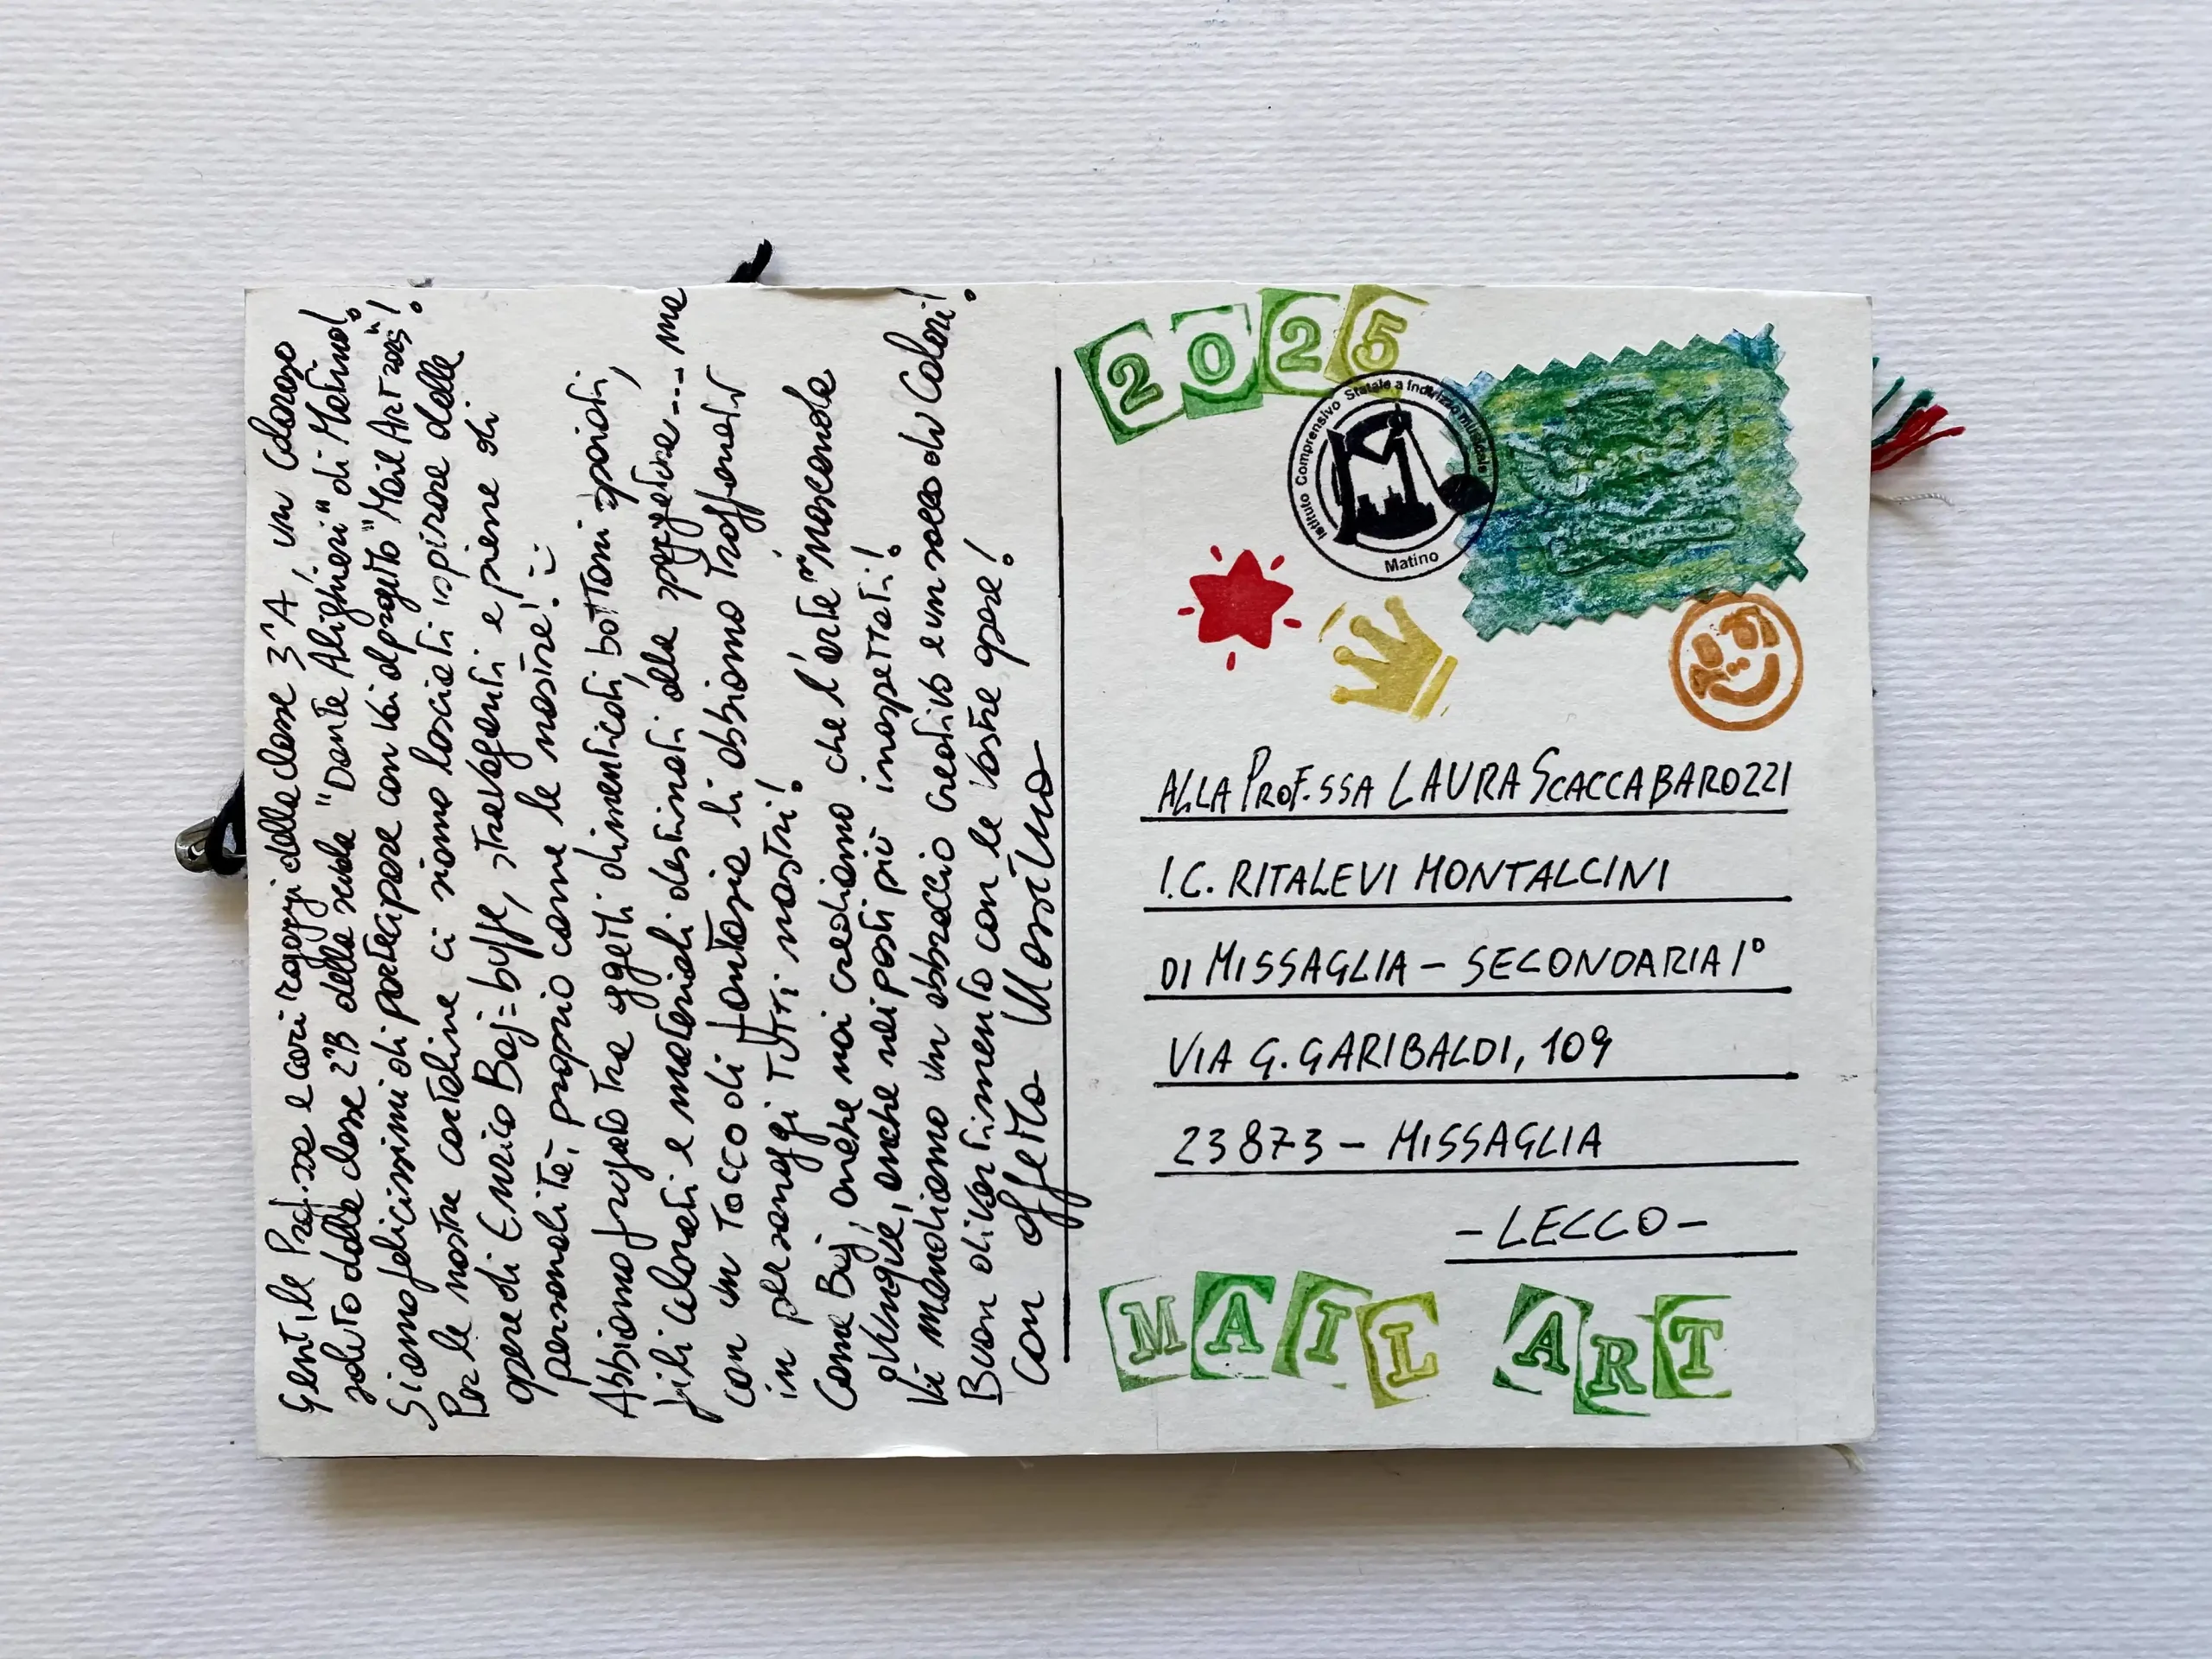 Gentile Prof.ssa e cari ragazzi della classe 3^A, un caloroso
saluto dalla classe 2^B della scuola "Dante Alighieri" di Matino!
Siamo felicissimi di partecipare con voi al progetto "Mail Art 2025"!
Per le nostre cartoline ci siamo lasciati ispirare dalle
opere di Enrico Baj: buffe, stravaganti e piene di
personalità, proprio come le nostre! :-)
Abbiamo frugato tra oggetti dimenticati, bottoni spaiati,
fili colorati e materiali destinati alla spazzatura.... ma
con un tocco di fantasia li abbiamo trasformati
in personaggi tutti nostri!
Come Baj, anche noi crediamo che l'arte "nasconda
ovunque, anche nei posti più inaspettati!
Vi mandiamo un abbraccio creativo e un sacco di colori!
Buon divertimento con le vostre opere!
Con affetto
2025
Istituto Comprensivo Statale a Indirizzo musicale
Matino
ALLA PROF.SSA LAURA SCACCABAROZZI
I.C. RITALEVI MONTALCINI
DI MISSAGLIA – SECONDARIA I°
VIA G. GARIBALDI, 109
23873 – MISSAGLIA
– LECCO –
MAIL ART